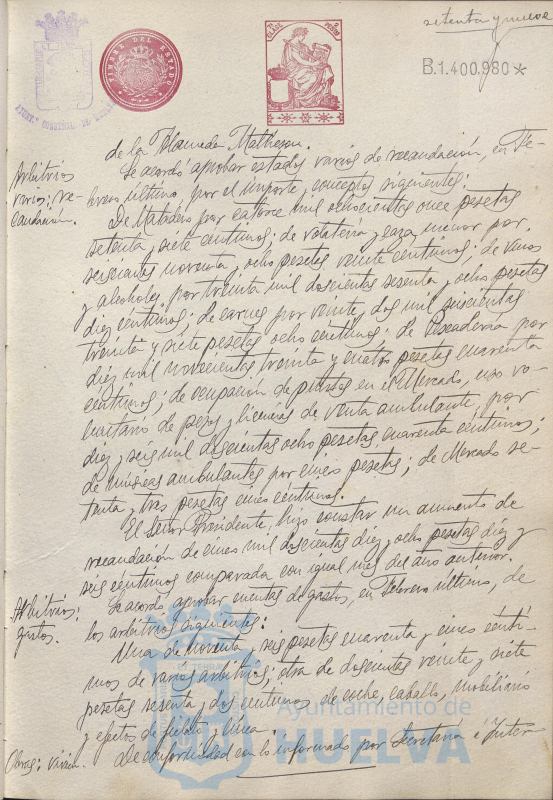 setenta y nueve
B.1.400.980*
TIMBRE DEL ESTADO
7ª CLASE
de la Alameda Matheson.
Arbitrios varios; recaudación.
Se acordó aprobar estados varios de recaudación, en Fe-
brero último, por el importe y conceptos siguientes:
De Matadero por catorce mil ochocientas once pesetas
setenta y siete céntimos; de volatería y caza menor por
seiscientas noventa y ocho pesetas veinte céntimos; de vinos
y alcoholes, por treinta mil doscientas sesenta y ocho pesetas
diez céntimos; de carnes por veinte y dos mil seiscientas
treinta y siete pesetas ocho céntimos; de Pescadería por
diez mil novecientas treinta y cuatro pesetas cuarenta
céntimos; de ocupación de puestos en el Mercado, uso vo-
luntario de pesas y licencias de venta ambulante, por
diez y seis mil doscientas ocho pesetas cuarenta céntimos;
de músicas ambulantes por cinco pesetas; de Mercado se-
tenta y tres pesetas cinco céntimos.
El Señor Presidente, hizo constar un aumento de
recaudación de cinco mil doscientas diez y ocho pesetas diez y
seis céntimos comparada con igual mes del año anterior.
Arbitrios; gastos.
Se acordó, aprobar cuentas de gastos, en Febrero último, de
los arbitrios siguientes:
Una de noventa y seis pesetas cuarenta y cinco cénti-
mos de varios arbitrios; otra de doscientas veinte y siete
pesetas sesenta y dos céntimos de coche, caballo, mobiliario
y efectos de fielato y línea.
Obras;
De conformidad con lo informado por Secretaría é Inter-
Ayuntamiento de
HUELVA